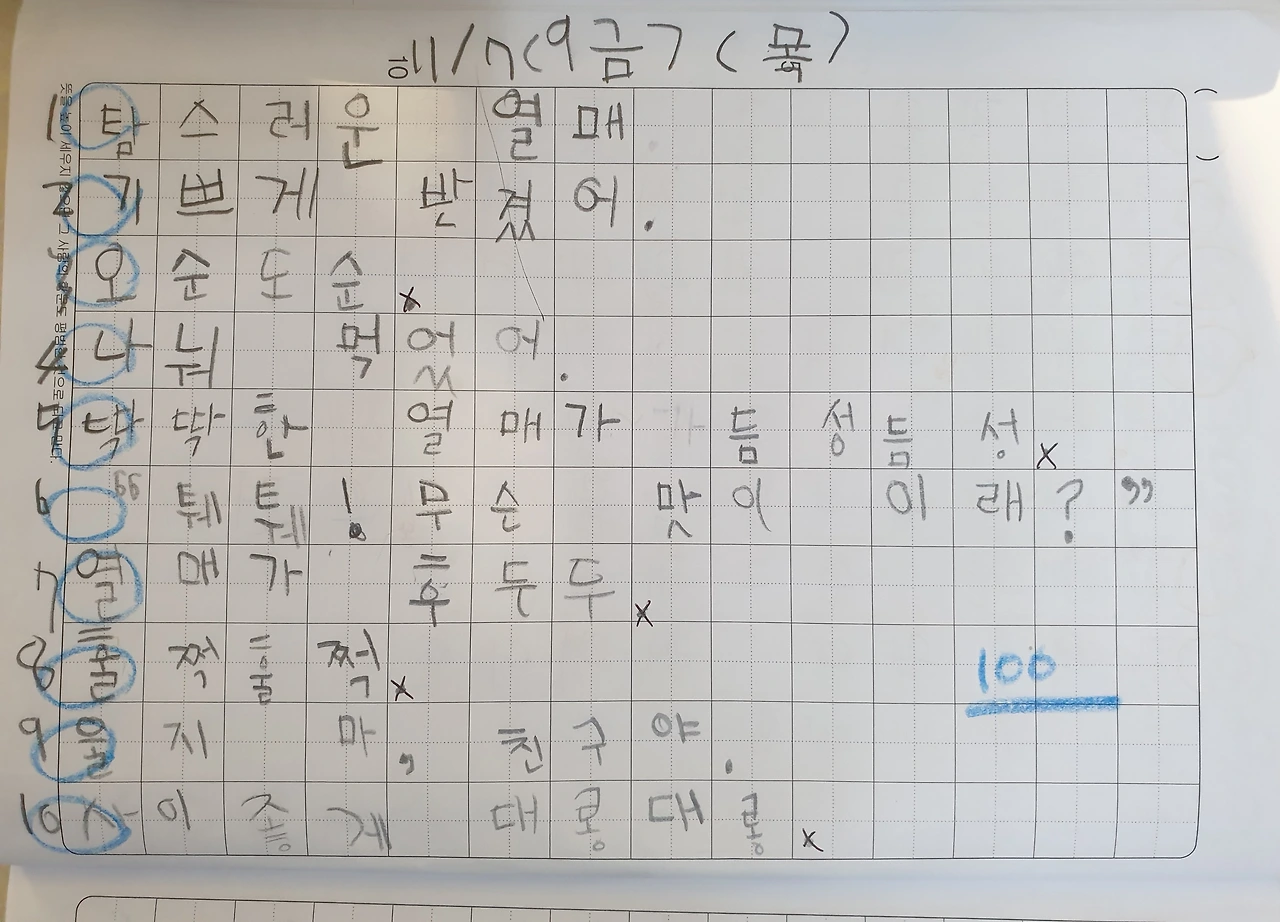 11/7(9금7 (목)
10
1 탐스러운 열매.
2 기쁘게 반겼어.
3 오순도순
4 나눠 먹었어.
5 딱딱한 열매가 듬성듬성
6 “퉤퉤! 무순 맛이 이래?”
7 열매가 후두두
8 훌쩍훌쩍
9 울지 마, 친구야.
10 사이좋게 대롱대롱
100